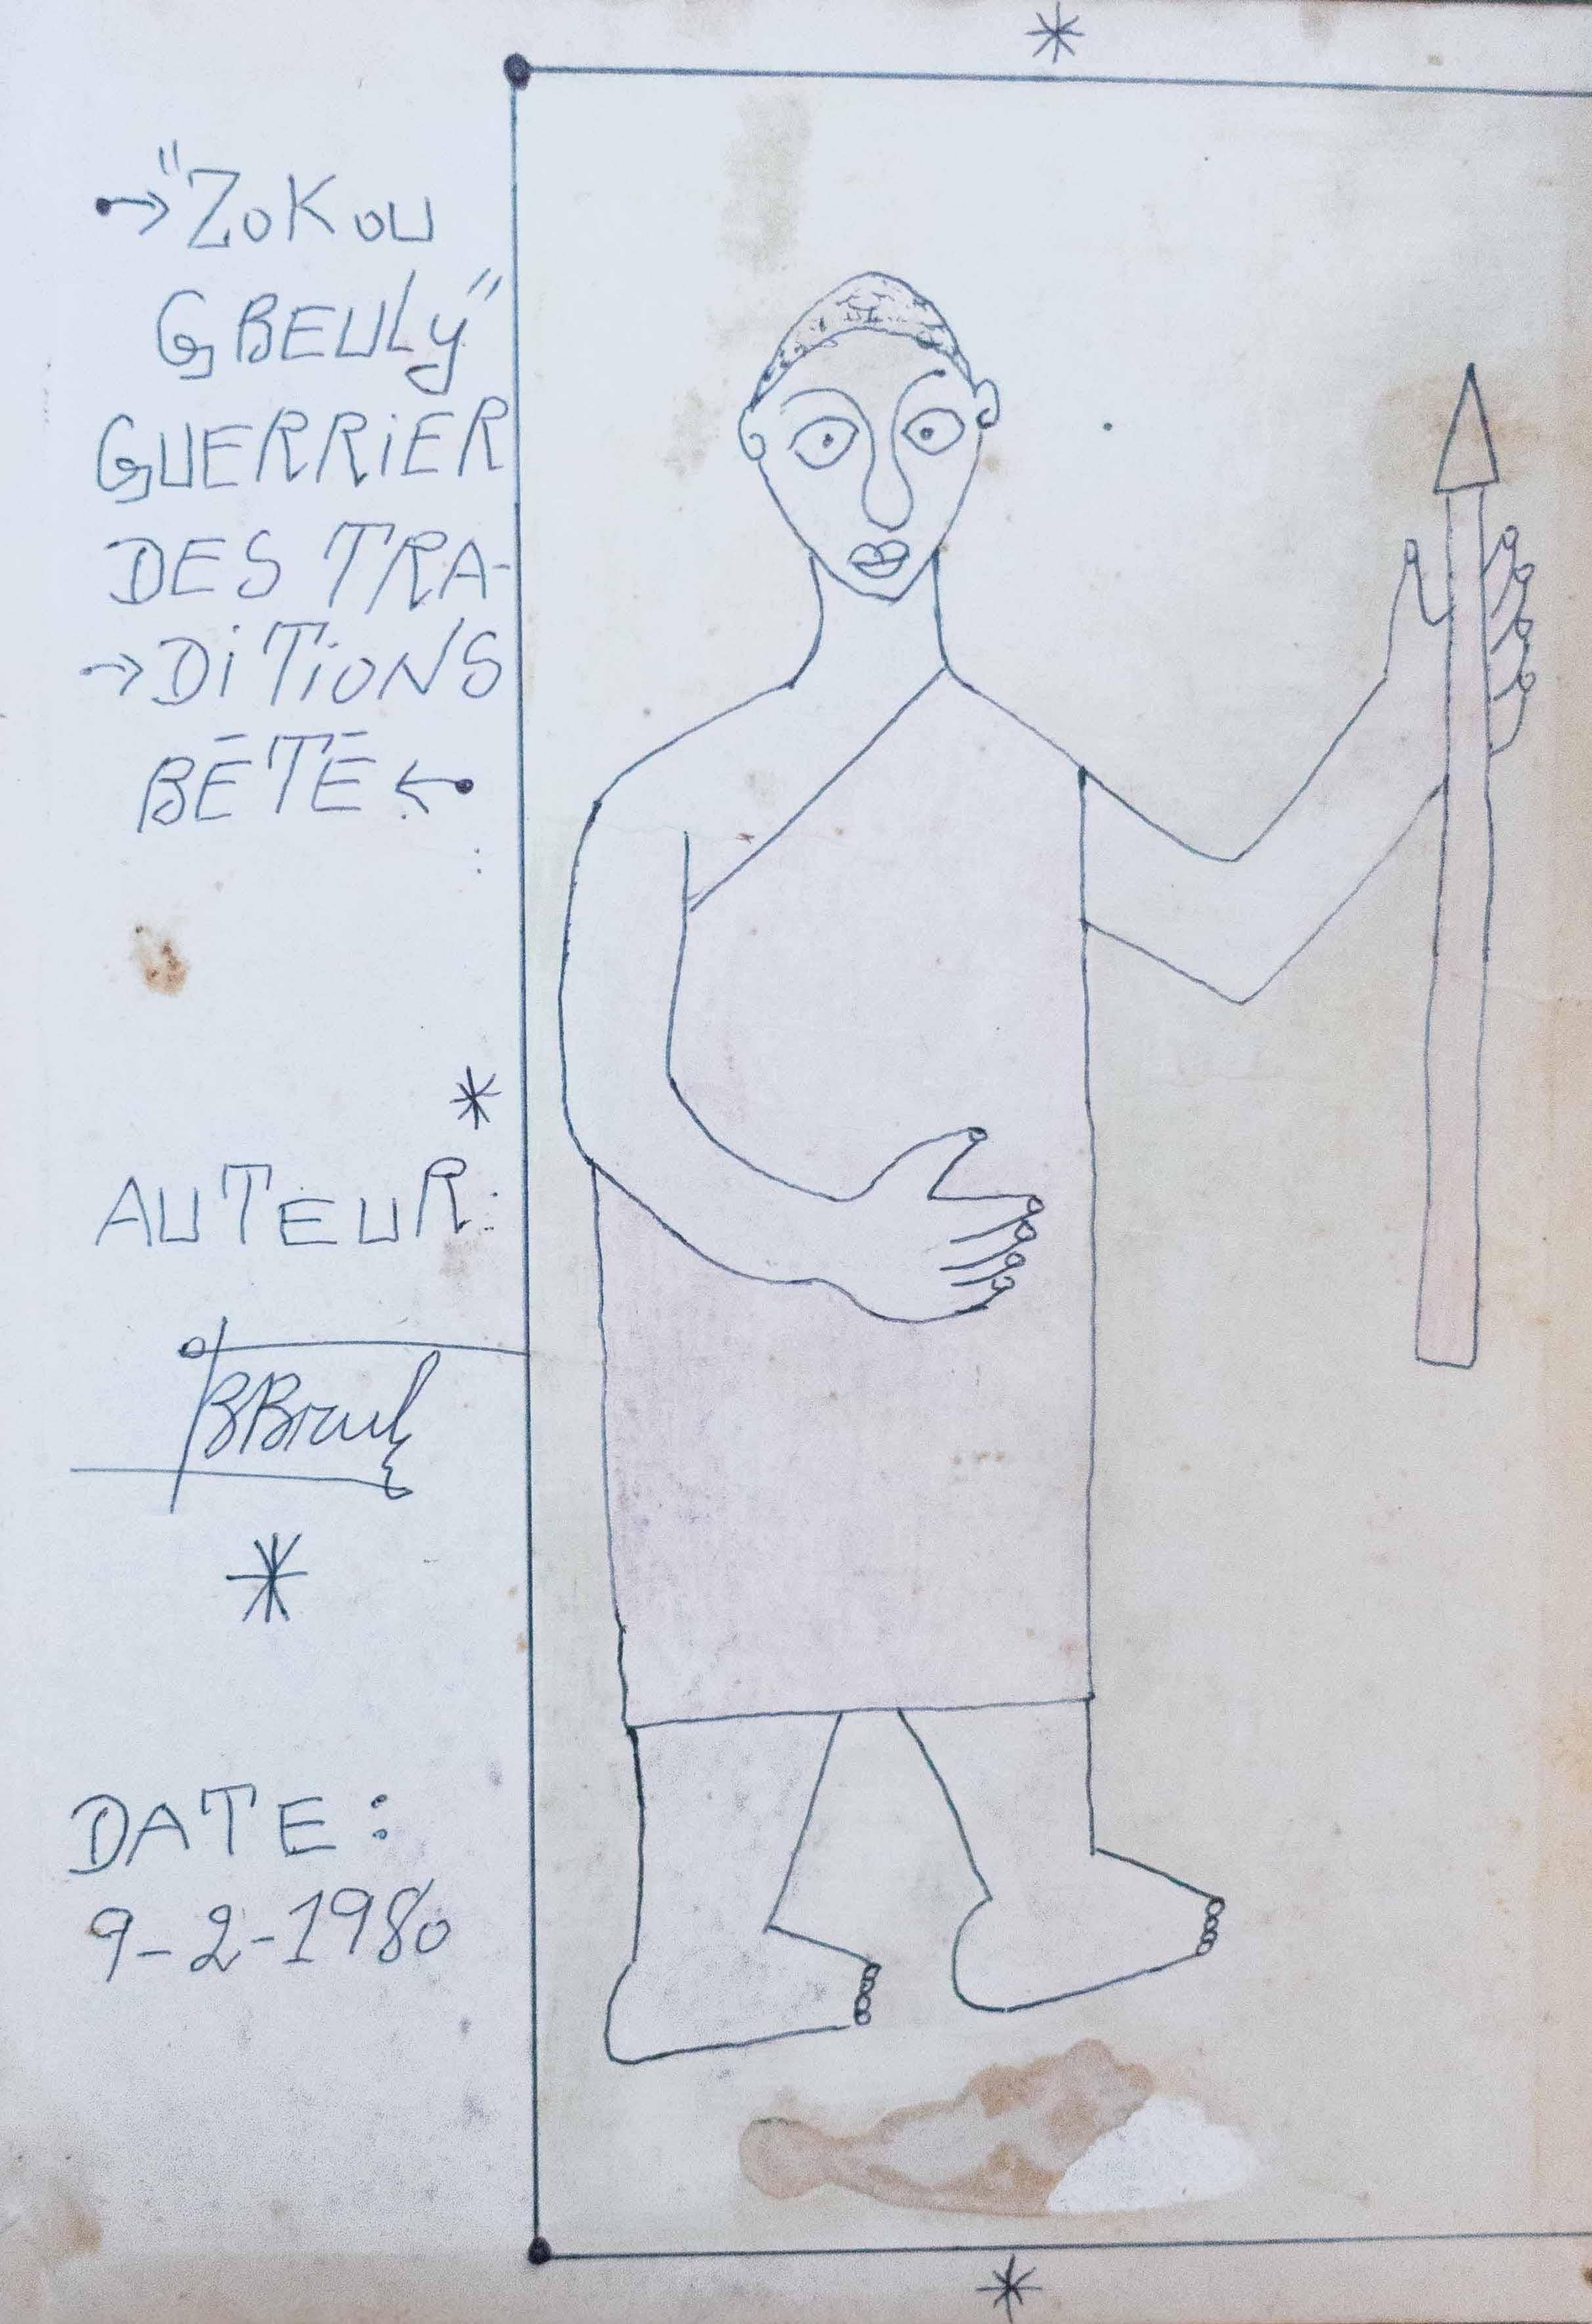 "ZOKOU
GBEULY"
GUERRIER
DES TRA-
DITIONS
BĒTĒ
AUTEUR:
DATE:
9-2-1980